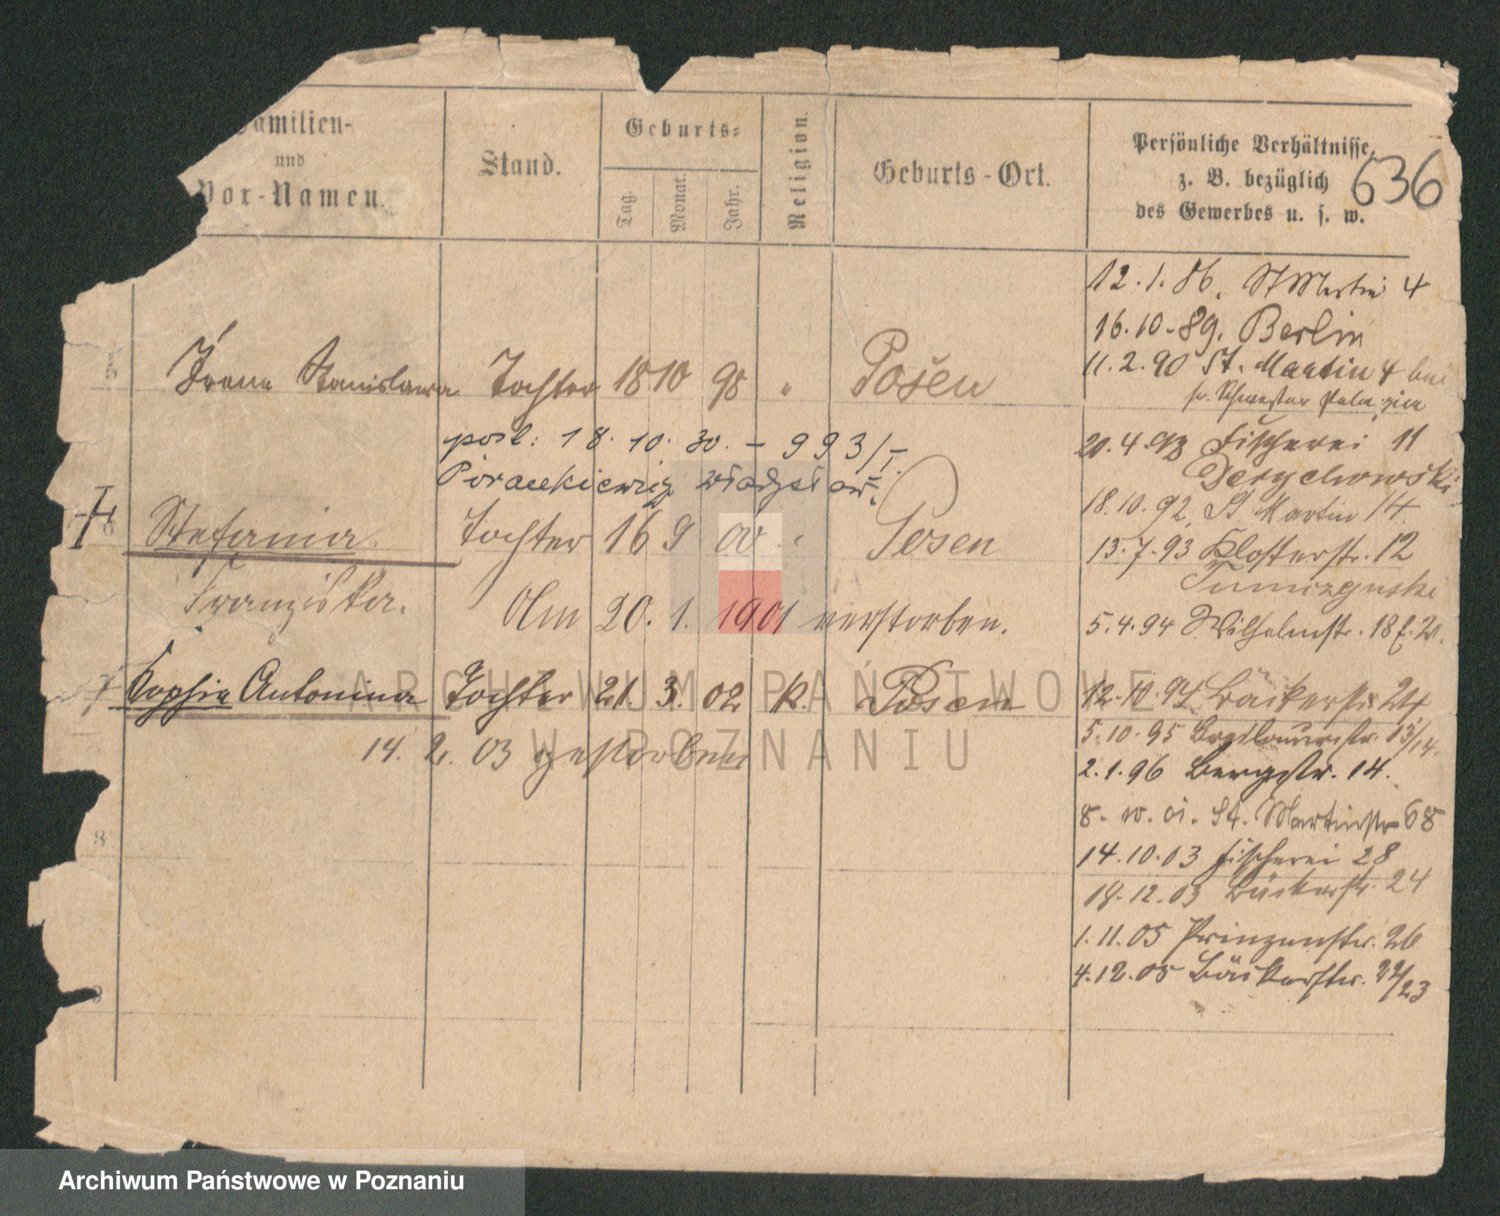 Familien-
und
Vor-Namen.
Stand.
Geburts=
Tag.
Monat.
Jahr.
Religion.
Geburts-Ort.
Persönliche Verhältnisse,
z. B. bezüglich
des Gewerbes u. s. w.
636
12.1.86. St Martin 4
16.10.89. Berlin
11.2.90 St. Martin 4 bei
sr. Schwester
5 Irene Stanislawa Tochter 18 10 98 " Posen
posl: 18.10.30. - 993/I.
20.4.92 Fischerei 11
18.10.92. St Martin 14.
6 Stefania Tochter 16 9 00 " Posen
13.7.93 Klosterstr. 12
Franziska. Am 20.1.1901 verstorben.
5.4.94 Wilhelmstr. 18
7 Sophie Antonina Tochter 21. 3. 02 k. Posen
12.10.94 Bäckerstr 24
14. 2. 03 gestorben
5.10.95 Breslauerstr. 13/14.
2.1.96 Bergstr. 14.
St. Martinstr 68
8
14.10.03 Fischerei 28
18.12.03 Bäckerstr. 24
1.11.05 Prinzenstr. 26
4.12.05 Bäckerstr. 22/23
9
ARCHIWUM PAŃSTWOWE
W POZNANIU
Archiwum Państwowe w Poznaniu